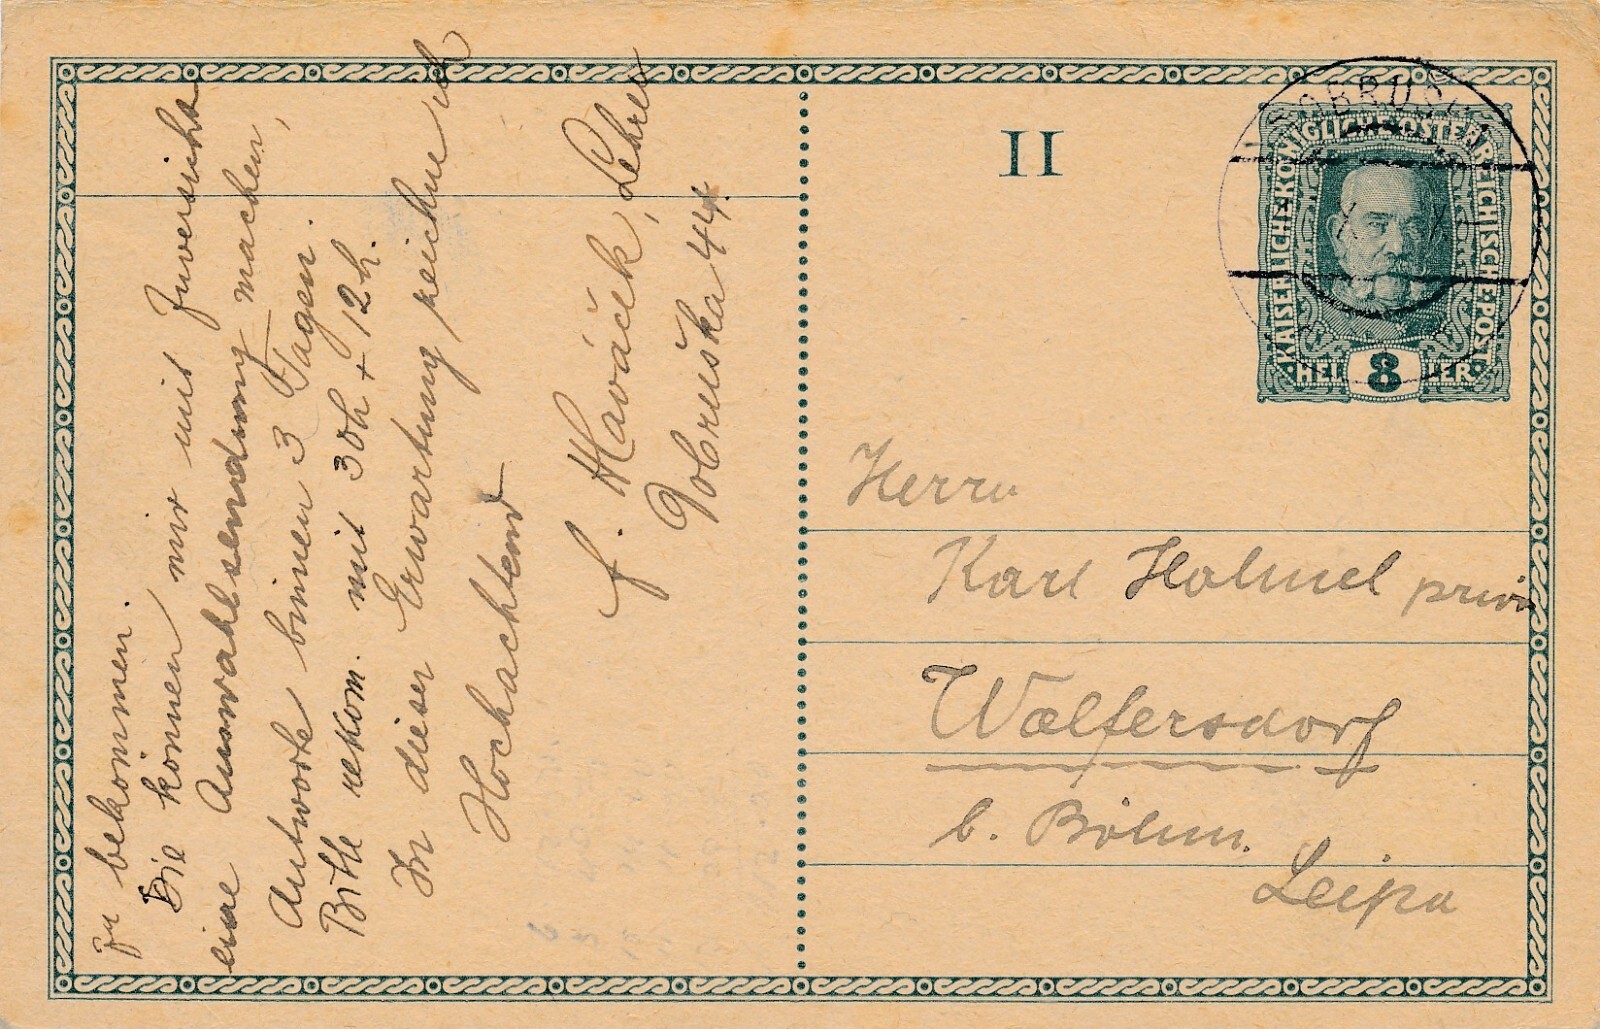 zu bekommen.
Die können mir mit Zuversicht
eine Auswahlsendung machen,
Antworte binnen 3 Tagen.
Bitte rekom. mit 30h + 12h.
In dieser Erwartung zeichne ich
Hochachtend
f. Hlaváček, Lehrer
Dobruška 44.
II
KAISERLICHE·KÖNIGLICHE·ÖSTERREICHISCHE·POST
8
HELLER
Herrn
Karl
Wolfersdorf
b. Böhm.
Leipa